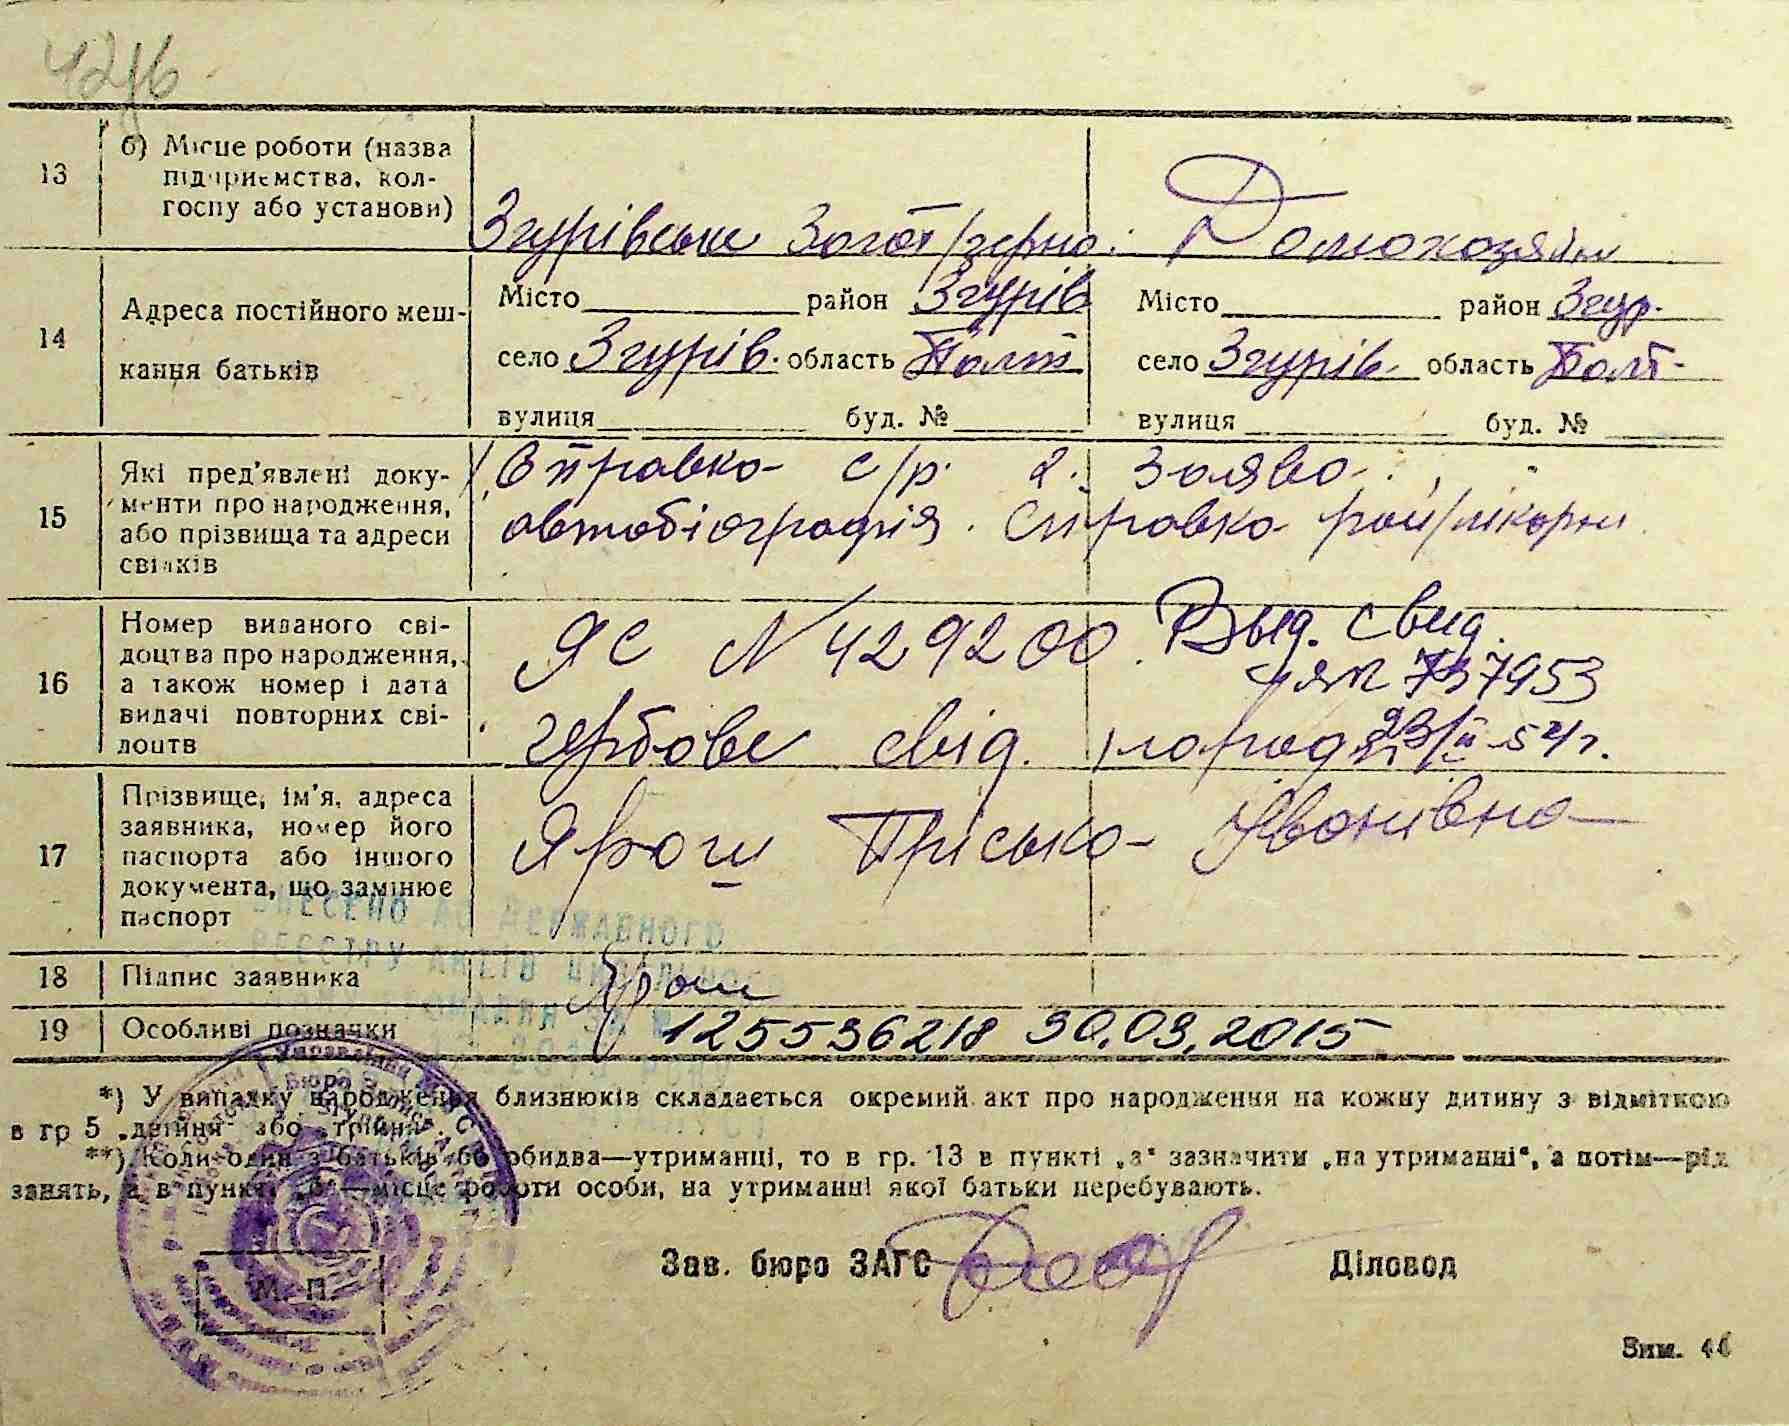 42
13 б) Місце роботи (назва
підприємства, кол-
госпу або установи)
Згурівське Загот/зерно. Домохозяйка
14 Адреса постійного меш-
кання батьків
Місто район Згурів Місто район Згур.
село Згурів. область Полт село Згурів. область Полт-
вулиця буд. № вулиця буд. №
15 Які пред'явлені доку-
менти про народження,
або прізвища та адреси
свідків
Справка с/р. 2. Заява.
автобіографія. Справка рай/лікарні
16 Номер виданого сві-
доцтва про народження,
а також номер і дата
видачі повторних сві-
доцтв
ЯС N 429200. Выд. свид.
737953
гербове свід. народ 23/II-54г.
17 Прізвище, ім'я, адреса
заявника, номер його
паспорта або іншого
документа, що замінює
паспорт
Ярош Пріська Івонівна
ВНЕСЕНО ДО ДЕРЖАВНОГО
РЕЄСТРУ АКТІВ ЦИВІЛЬНОГО
18 Підпис заявника Ярош
19 Особливі позначки 125536218 30.03.2015
*) У випадку народження близнюків складається окремий акт про народження на кожну дитину з відміткою
в гр 5 „двійня" або „трійня".
**) Коли один з батьків бо обидва—утриманці, то в гр. 13 в пункті „а" зазначити „на утриманні", а потім—рід
занять, а в пункті „б"—місце роботи особи, на утриманні якої батьки перебувають.
М. П.
Зав. бюро ЗАГС Діловод
Зим. 44